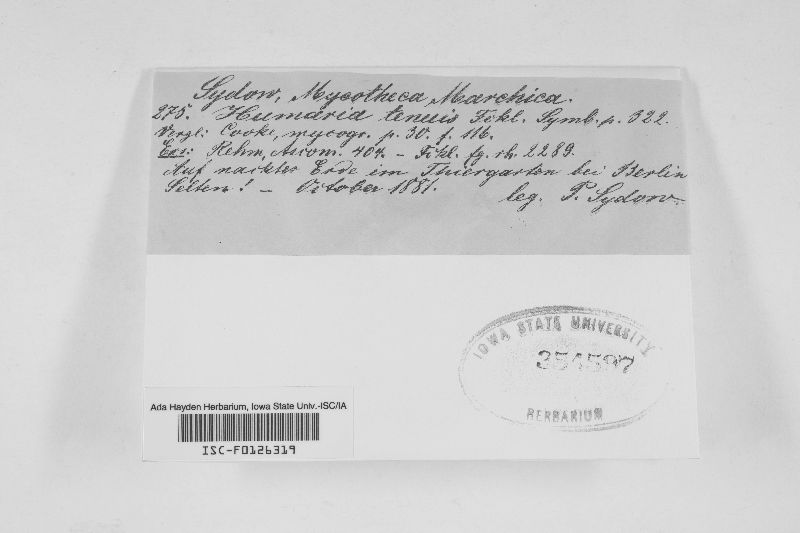 Sydow, Mycotheca Marchica.
275. Humaria tenuis Fckl. Symb. p. 322.
Vergl: Cooke, mycogr. p. 30. f. 116.
Exs: Rehm, Ascom. 404. – Fckl. fg. rh. 2289.
Auf nackter Erde im Thiergarten bei Berlin
Selten! – October 1881.
leg. P. Sydow.
IOWA STATE UNIVERSITY
HERBARIUM
Ada Hayden Herbarium, Iowa State Univ.-ISC/IA
ISC-F0126319